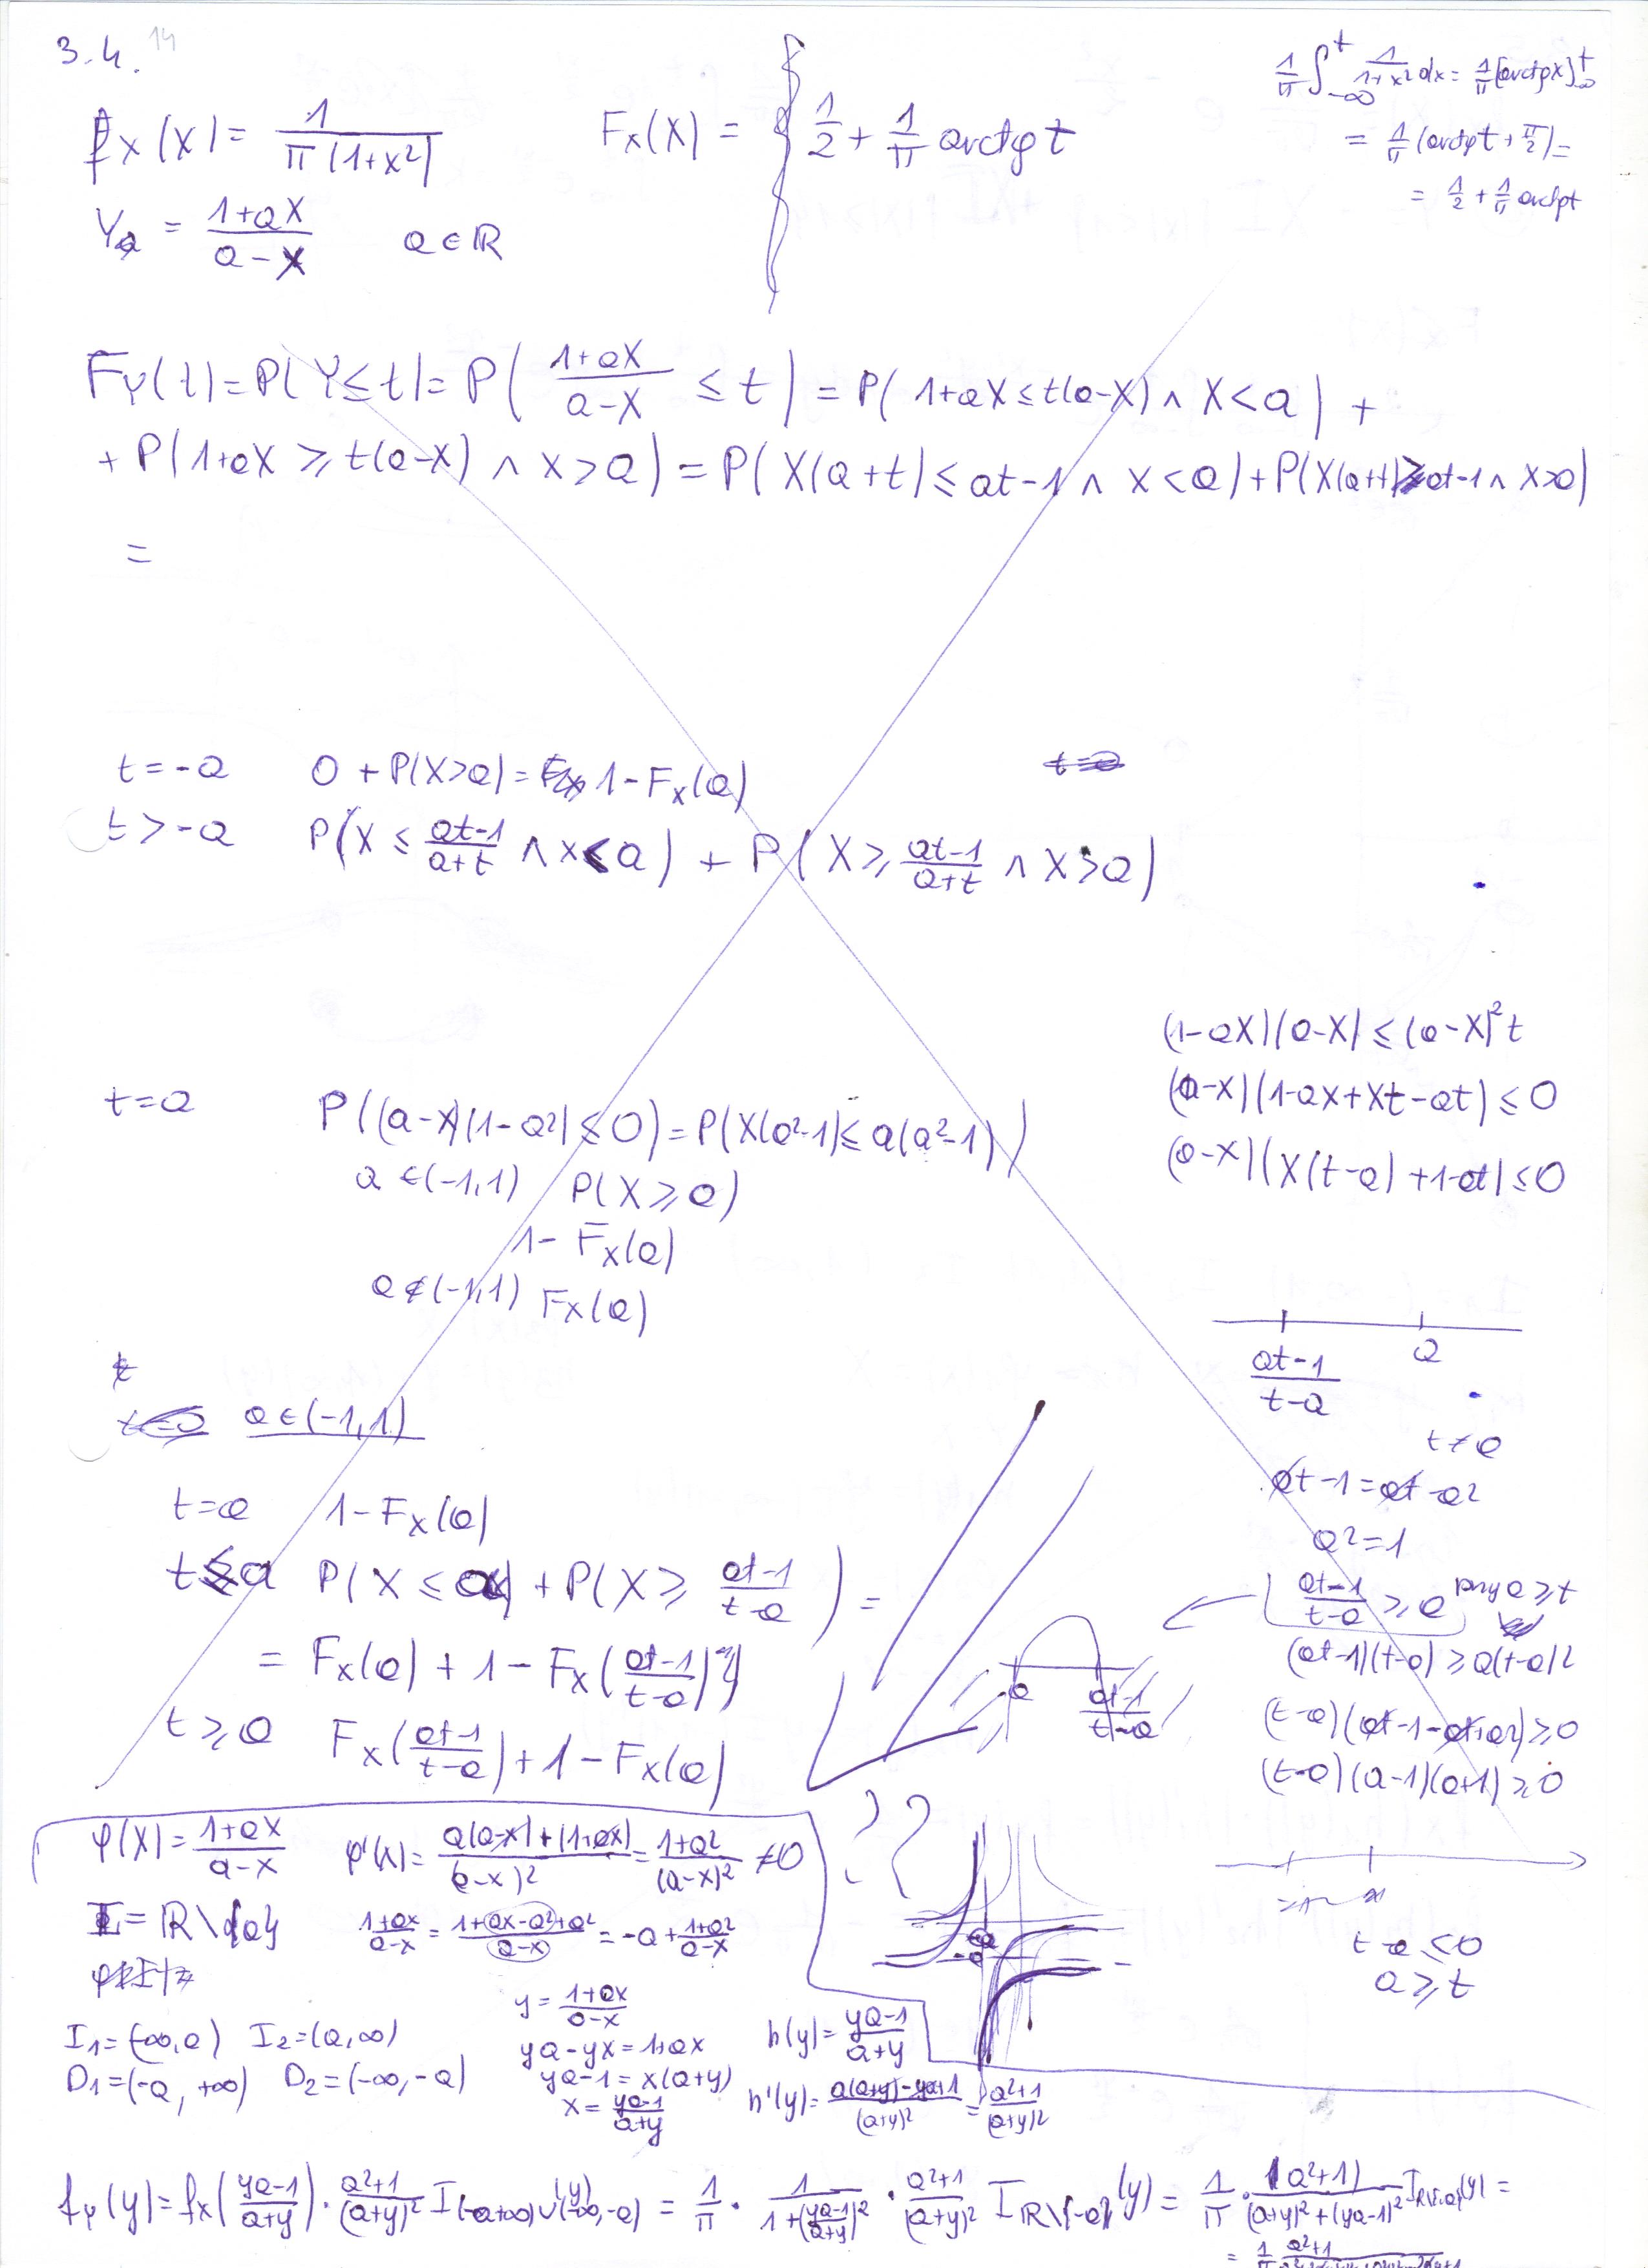 3.4. 14
f_X(X) = \frac{1}{\pi(1+x^2)}
F_X(X) = \frac{1}{2} + \frac{1}{\pi} arctg t
\frac{1}{\pi} \int_{-\infty}^{t} \frac{1}{1+x^2} dx = \frac{1}{\pi} [arctg x]_{-\infty}^{t}
= \frac{1}{\pi} (arctg t + \frac{\pi}{2}) =
= \frac{1}{2} + \frac{1}{\pi} arctg t
Y_a = \frac{1+aX}{a-X} a ∈ ℝ
F_Y(t) = P(Y ≤ t) = P( \frac{1+aX}{a-X} ≤ t ) = P( 1+aX ≤ t(a-X) ∧ X < a ) +
+ P( 1+aX ≥ t(a-X) ∧ X > a ) = P( X(a+t) ≤ at-1 ∧ X < a ) + P( X(a+t) ≥ at-1 ∧ X > a )
=
t = -a 0 + P(X > a) = 1 - F_X(a)
t = a
t > -a P( X ≤ \frac{at-1}{a+t} ∧ X < a ) + P( X ≥ \frac{at-1}{a+t} ∧ X > a )
(1-aX)(a-X) ≤ (a-X)^2 t
(a-X)(1-aX+Xt-at) ≤ 0
(a-X)(X(t-a)+1-at) ≤ 0
t = a P( (a-X)(1-a^2) ≤ 0 ) = P( X(a^2-1) ≤ a(a^2-1) )
a ∈ (-1,1) P(X ≥ a)
1 - F_X(a)
a ∉ (-1,1) F_X(a)
\frac{at-1}{t-a} a
t
a ∈ (-1,1)
t ≠ a
at-1 = at-a^2
a^2 = 1
t = a 1 - F_X(a)
t ≤ a P( X ≤ a ) + P( X ≥ \frac{at-1}{t-a} ) =
= F_X(a) + 1 - F_X( \frac{at-1}{t-a} )
t ≥ a F_X( \frac{at-1}{t-a} ) + 1 - F_X(a)
a \frac{at-1}{t-a}
\frac{at-1}{t-a} ≥ a przy a ≥ t
(at-1)(t-a) ≥ a(t-a)^2
(t-a)(at-1-at+a^2) ≥ 0
(t-a)(a-1)(a+1) ≥ 0
??
t-a ≤ 0
a ≥ t
φ(X) = \frac{1+aX}{a-X} φ'(x) = \frac{a(a-x)+(1+ax)}{(a-x)^2} = \frac{1+a^2}{(a-x)^2} ≠ 0
I = ℝ\{a} \frac{1+ax}{a-x} = \frac{1+ax-a^2+a^2}{a-x} = -a + \frac{1+a^2}{a-x}
-a
I_1 = (-∞,a) I_2 = (a,∞)
D_1 = (-a, +∞) D_2 = (-∞, -a)
y = \frac{1+ax}{a-x}
ya-yx = 1+ax
ya-1 = x(a+y)
x = \frac{ya-1}{a+y}
h(y) = \frac{ya-1}{a+y}
h'(y) = \frac{a(a+y)-ya+1}{(a+y)^2} = \frac{a^2+1}{(a+y)^2}
f_Y(y) = f_X( \frac{ya-1}{a+y} ) · \frac{a^2+1}{(a+y)^2} I_{(-a,+∞)∪(-∞,-a)}(y) = \frac{1}{\pi} · \frac{1}{1+(\frac{ya-1}{a+y})^2} · \frac{a^2+1}{(a+y)^2} I_{ℝ\{-a}}(y) = \frac{1}{\pi} · \frac{(a^2+1)}{(a+y)^2+(ya-1)^2} I_{ℝ\{-a}}(y) =
= \frac{1}{\pi} \frac{a^2+1}{}